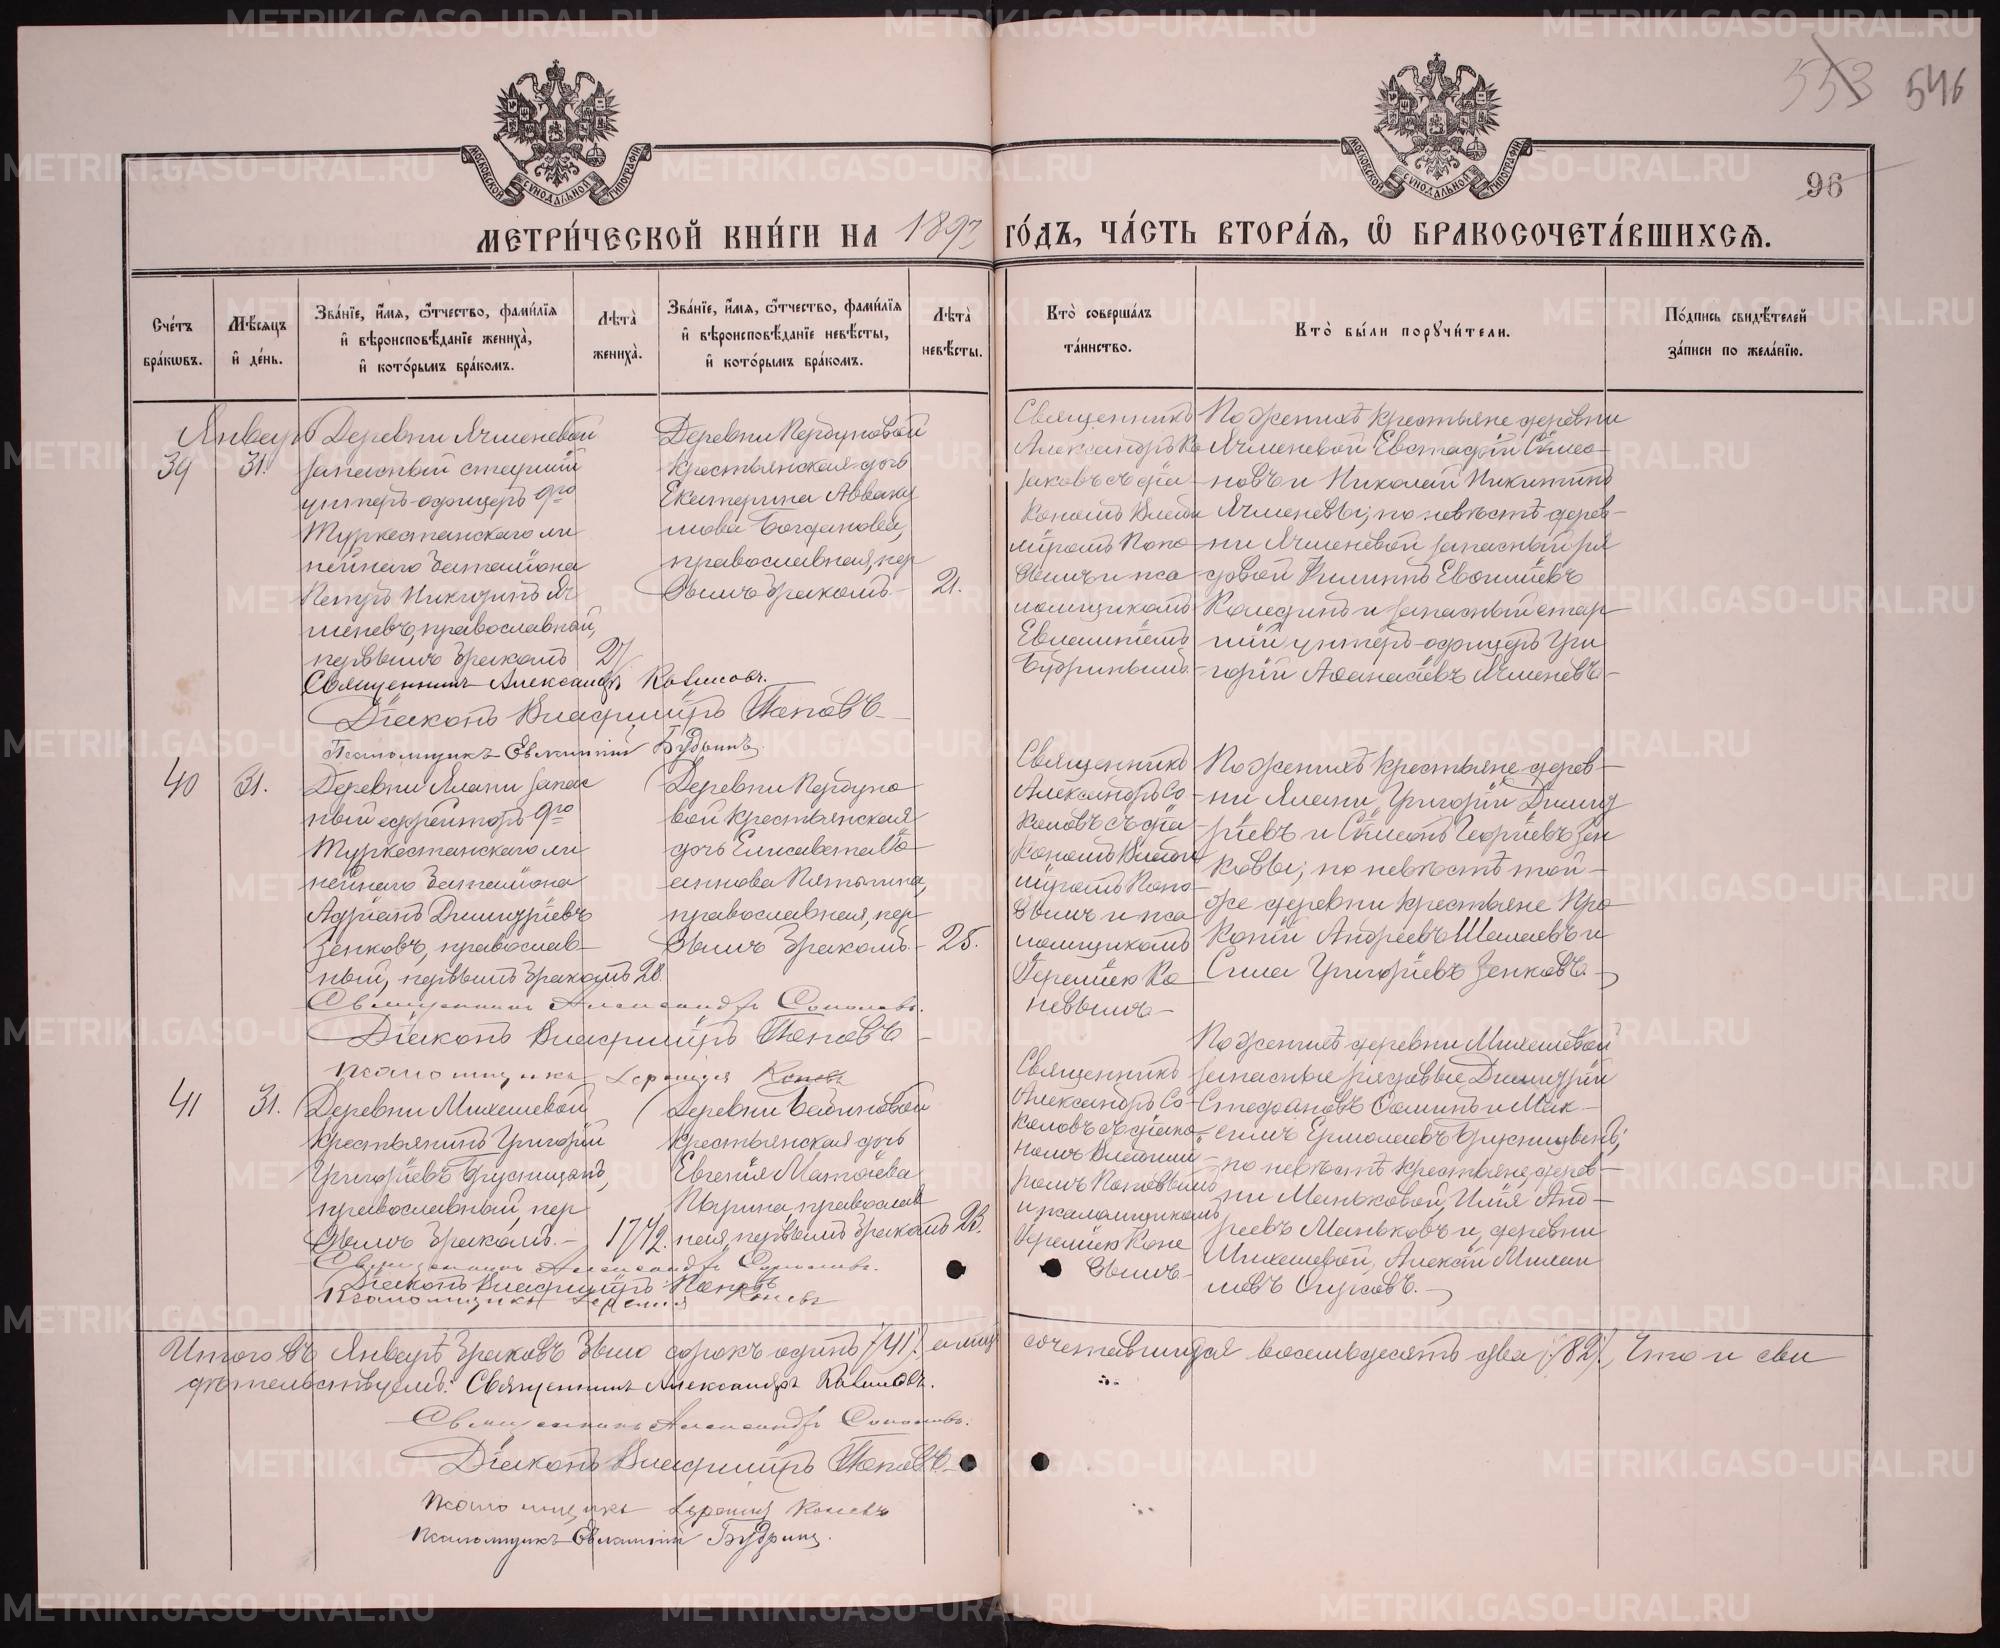 553 546
96
МОСКОВСКОЙ СУНОДАЛЬНОЙ ТИПОГРАФІИ
МОСКОВСКОЙ СУНОДАЛЬНОЙ ТИПОГРАФІИ
МЕТРИ́ЧЕСКОЙ КНИ́ГИ НА 1893 ГО́ДЪ, ЧА́СТЬ ВТОРА́Я, Ѡ БРАКОСОЧЕТА́ВШИХСЯ.
Сче́тъ бра́кѡвъ.
Мѣ́сяцъ и де́нь.
Зва́нїе, и́мя, ѻ́тчество, фами́лїя и вѣроисповѣ́данїе жениха̀, и кото́рымъ бра́комъ.
Лѣта̀ жениха̀.
Зва́нїе, и́мя, ѻ́тчество, фами́лїя и вѣроисповѣ́данїе невѣ́сты, и кото́рымъ бра́комъ.
Лѣта̀ невѣ́сты.
Кто̀ соверша́лъ та́инство.
Кто̀ бы́ли порꙋчи́тели.
По́дпись свидѣ́телей за́писи по жела́нїю.
Январь
39
31.
Деревни Ячменевой
запасный старшій
унтеръ-офицеръ 9го
Туркестанскаго ли
нейнаго баталіона
Петръ Никитинъ Яч
меневъ, православный,
первымъ бракомъ
27
Деревни Перуновой
крестьянская дочь
Екатерина Авваку
мова Богданова,
православная, пер
вымъ бракомъ.
21.
Священникъ
Александръ Ко
маковъ съ діа
кономъ Влади
міромъ Попо
вымъ и пса
ломщикомъ
Евлампіемъ
Будринымъ.
По женихѣ крестьяне деревни
Ячменевой Евстафій Симео-
новъ и Николай Никитинъ
Ячменевы; по невѣстѣ дерев-
ни Ячменевой запасный ря
довой Филиппъ
и запасный стар
шій унтеръ-офицеръ Гри
горій Аѳанасіевъ Ячменевъ
Священникъ Александръ
Діаконъ Владиміръ Поповъ
Псаломщикъ Евлампій Будринъ.
40
31.
Деревни Ялани запас
ный ефрейторъ 9го
Туркестанскаго ли
нейнаго баталіона
Адріанъ Димитріевъ
Зенковъ, православ-
ный, первымъ бракомъ
28.
Деревни
вой крестьянская
дочь Елисавета Іо
аннова Пятыгина,
православная, пер
вымъ бракомъ.
25.
Священникъ
Александръ Со
коловъ съ діа-
кономъ Влади
міромъ Попо-
вымъ и пса
ломщикомъ
Іереміею Ко
невымъ
По женихѣ крестьяне дерев-
ни Ялани, Григорій Димит
ріевъ и Симеонъ Георгіевъ Зен
ковы; по невѣстѣ той-
же деревни крестьяне Про
копій Андреевъ Шалаевъ и
Сила Григоріевъ Зенковъ.
Священникъ Александръ Соколовъ.
Діаконъ Владиміръ Поповъ
Псаломщикъ Іеремія Коневъ
41
31.
Деревни Михалевой
крестьянинъ Григорій
Григоріевъ
православный, пер
вымъ бракомъ.
17 1/2.
Деревни
крестьянская дочь
Евгенія Матѳіева
православ
ная, первымъ бракомъ
23.
Священникъ
Александръ Со-
коловъ съ діако-
номъ Владимі-
ромъ Поповымъ
и псаломщикомъ
Іереміею Коне
вымъ.
По женихѣ деревни Михалевой
запасные рядовые Димитрій
Стефановъ и Мак-
симъ Ермолаевъ
по невѣстѣ крестьяне, дерев-
ни Маньковой, Илія Анд-
реевъ Маньковъ и, деревни
Михалевой, Алексій
Священникъ Александръ Соколовъ.
Діаконъ Владиміръ Поповъ
Псаломщикъ Іеремія Коневъ
Итого въ Январѣ браковъ было сорокъ одинъ /41/, а лицъ сочетавшихся восемьдесятъ два /82/, Что и сви
дѣтельствуемъ: Священникъ Александръ
Священникъ Александръ Соколовъ.
Діаконъ Владиміръ Поповъ
Псаломщикъ Іеремія Коневъ
Псаломщикъ Евлампій Будринъ.
METRIKI.GASO-URAL.RU